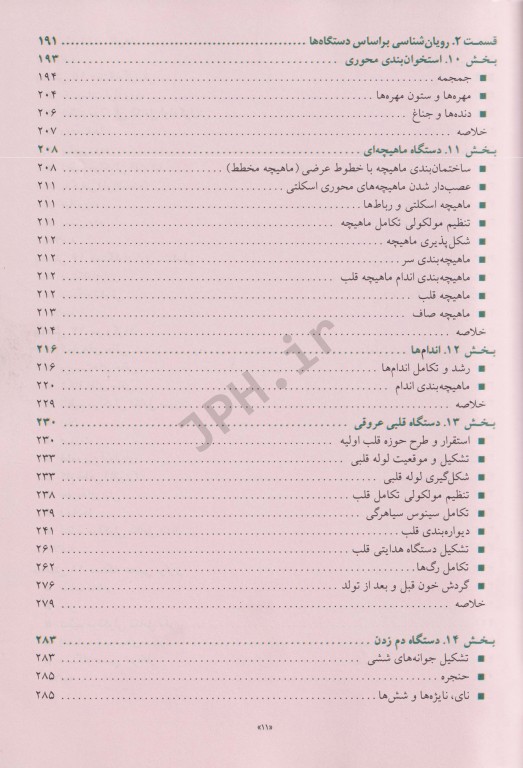 قسمت ۲. رویان‌شناسی براساس دستگاه‌ها ۱۹۱
بخش ۱۰. استخوان‌بندی محوری ۱۹۳
■ جمجمه ۱۹۴
■ مهره‌ها و ستون مهره‌ها ۲۰۴
■ دنده‌ها و جناغ ۲۰۶
خلاصه ۲۰۷
بخش ۱۱. دستگاه ماهیچه‌ای ۲۰۸
■ ساختمان‌بندی ماهیچه با خطوط عرضی (ماهیچه مخطط) ۲۰۸
■ عصب‌دار شدن ماهیچه‌های محوری اسکلتی ۲۱۱
■ ماهیچه اسکلتی و رباط‌ها ۲۱۱
■ تنظیم مولکولی تکامل ماهیچه ۲۱۱
■ شکل‌پذیری ماهیچه ۲۱۲
■ ماهیچه‌بندی سر ۲۱۲
■ ماهیچه‌بندی اندام ماهیچه قلب ۲۱۲
■ ماهیچه قلب ۲۱۲
■ ماهیچه صاف ۲۱۳
خلاصه ۲۱۴
بخش ۱۲. اندام‌ها ۲۱۶
■ رشد و تکامل اندام‌ها ۲۱۶
■ ماهیچه‌بندی اندام ۲۲۰
خلاصه ۲۲۹
بخش ۱۳. دستگاه قلبی عروقی ۲۳۰
■ استقرار و طرح حوزه قلب اولیه ۲۳۰
■ تشکیل و موقعیت لوله قلبی ۲۳۳
■ شکل‌گیری لوله قلبی ۲۳۳
■ تنظیم مولکولی تکامل قلب ۲۳۸
■ تکامل سینوس سیاهرگی ۲۳۹
■ دیواره‌بندی قلب ۲۴۱
■ تشکیل دستگاه هدایتی قلب ۲۶۱
■ تکامل رگ‌ها ۲۶۲
■ گردش خون قبل و بعد از تولد ۲۷۶
خلاصه ۲۷۹
بخش ۱۴. دستگاه دم زدن ۲۸۳
■ تشکیل جوانه‌های ششی ۲۸۳
■ حنجره ۲۸۵
■ نای، نایژه‌ها و شش‌ها ۲۸۵
«۱۱»
JPH.ir